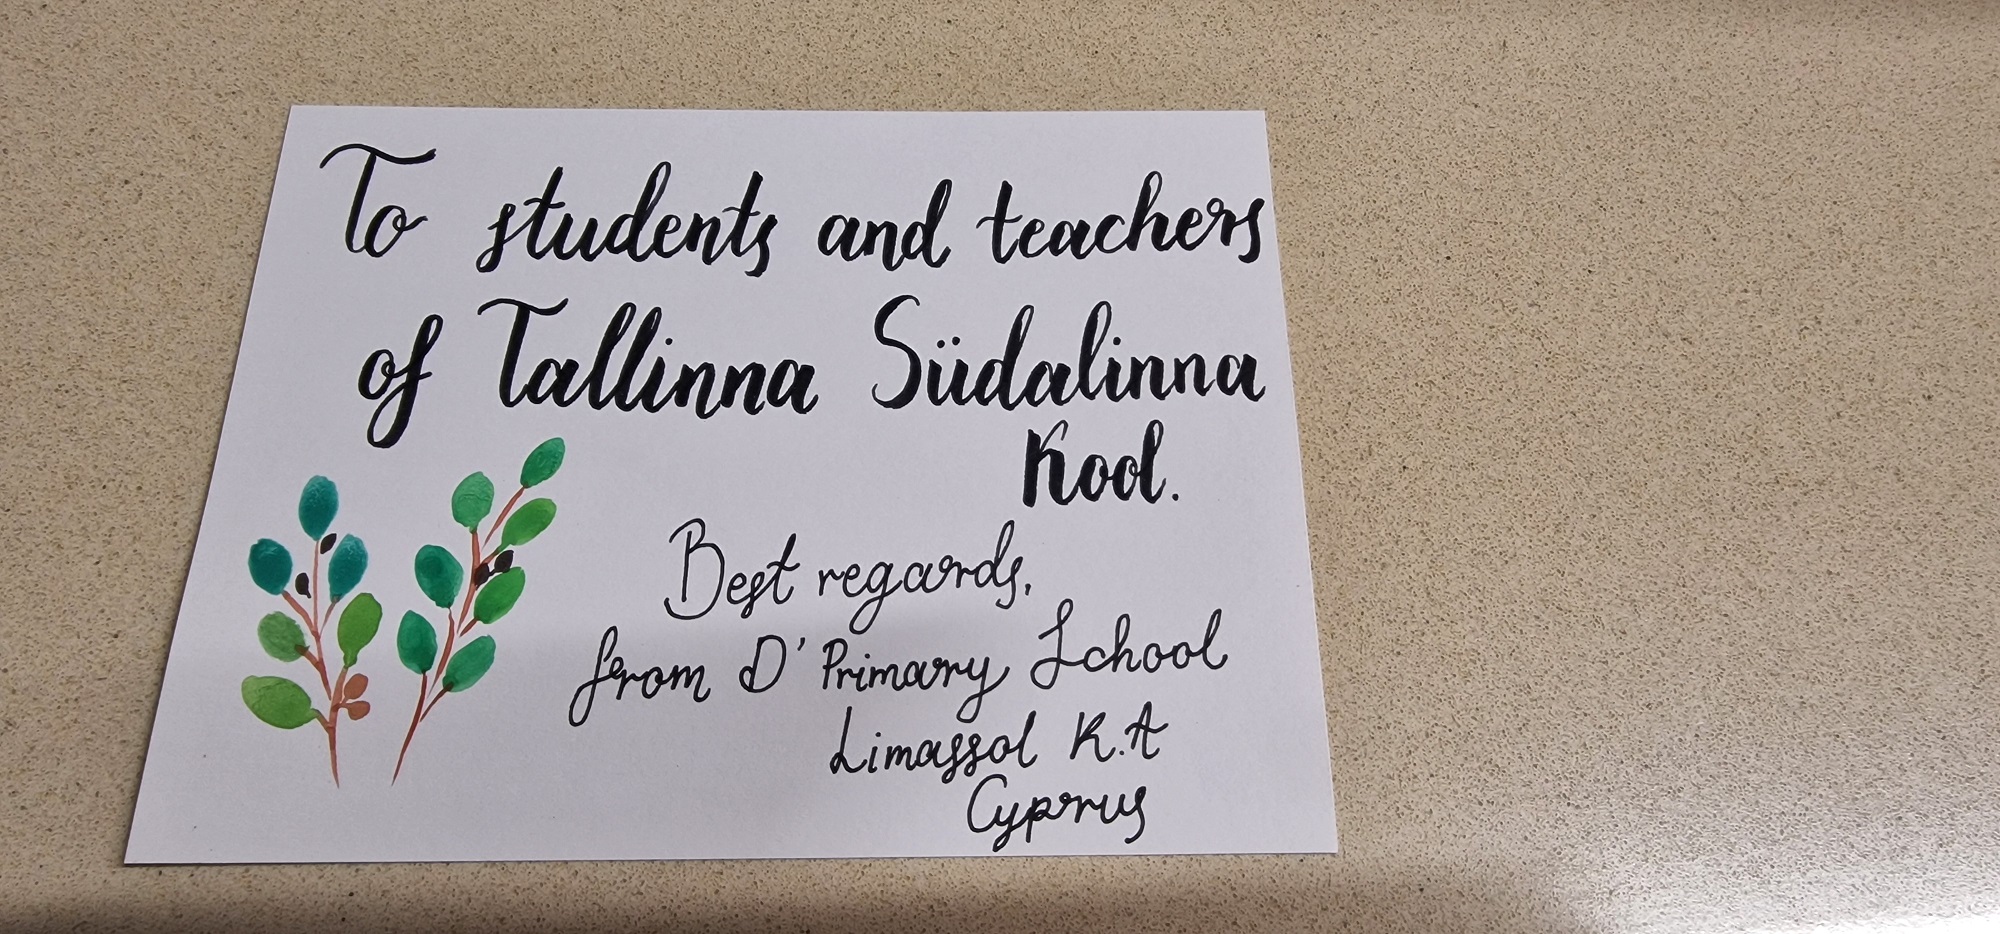 To students and teachers
of Tallinna Südalinna
Kool.
Best regards,
from D' Primary School
Limassol K.A
Cyprus